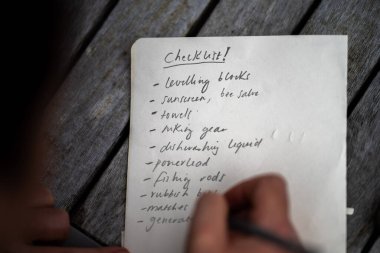 Checklist!
- levelling blocks
- sunscreen, bee salve
- towels
- hiking gear
- dishwashing liquid
- powerlead
- fishing rods
- rubbish
- matches
-